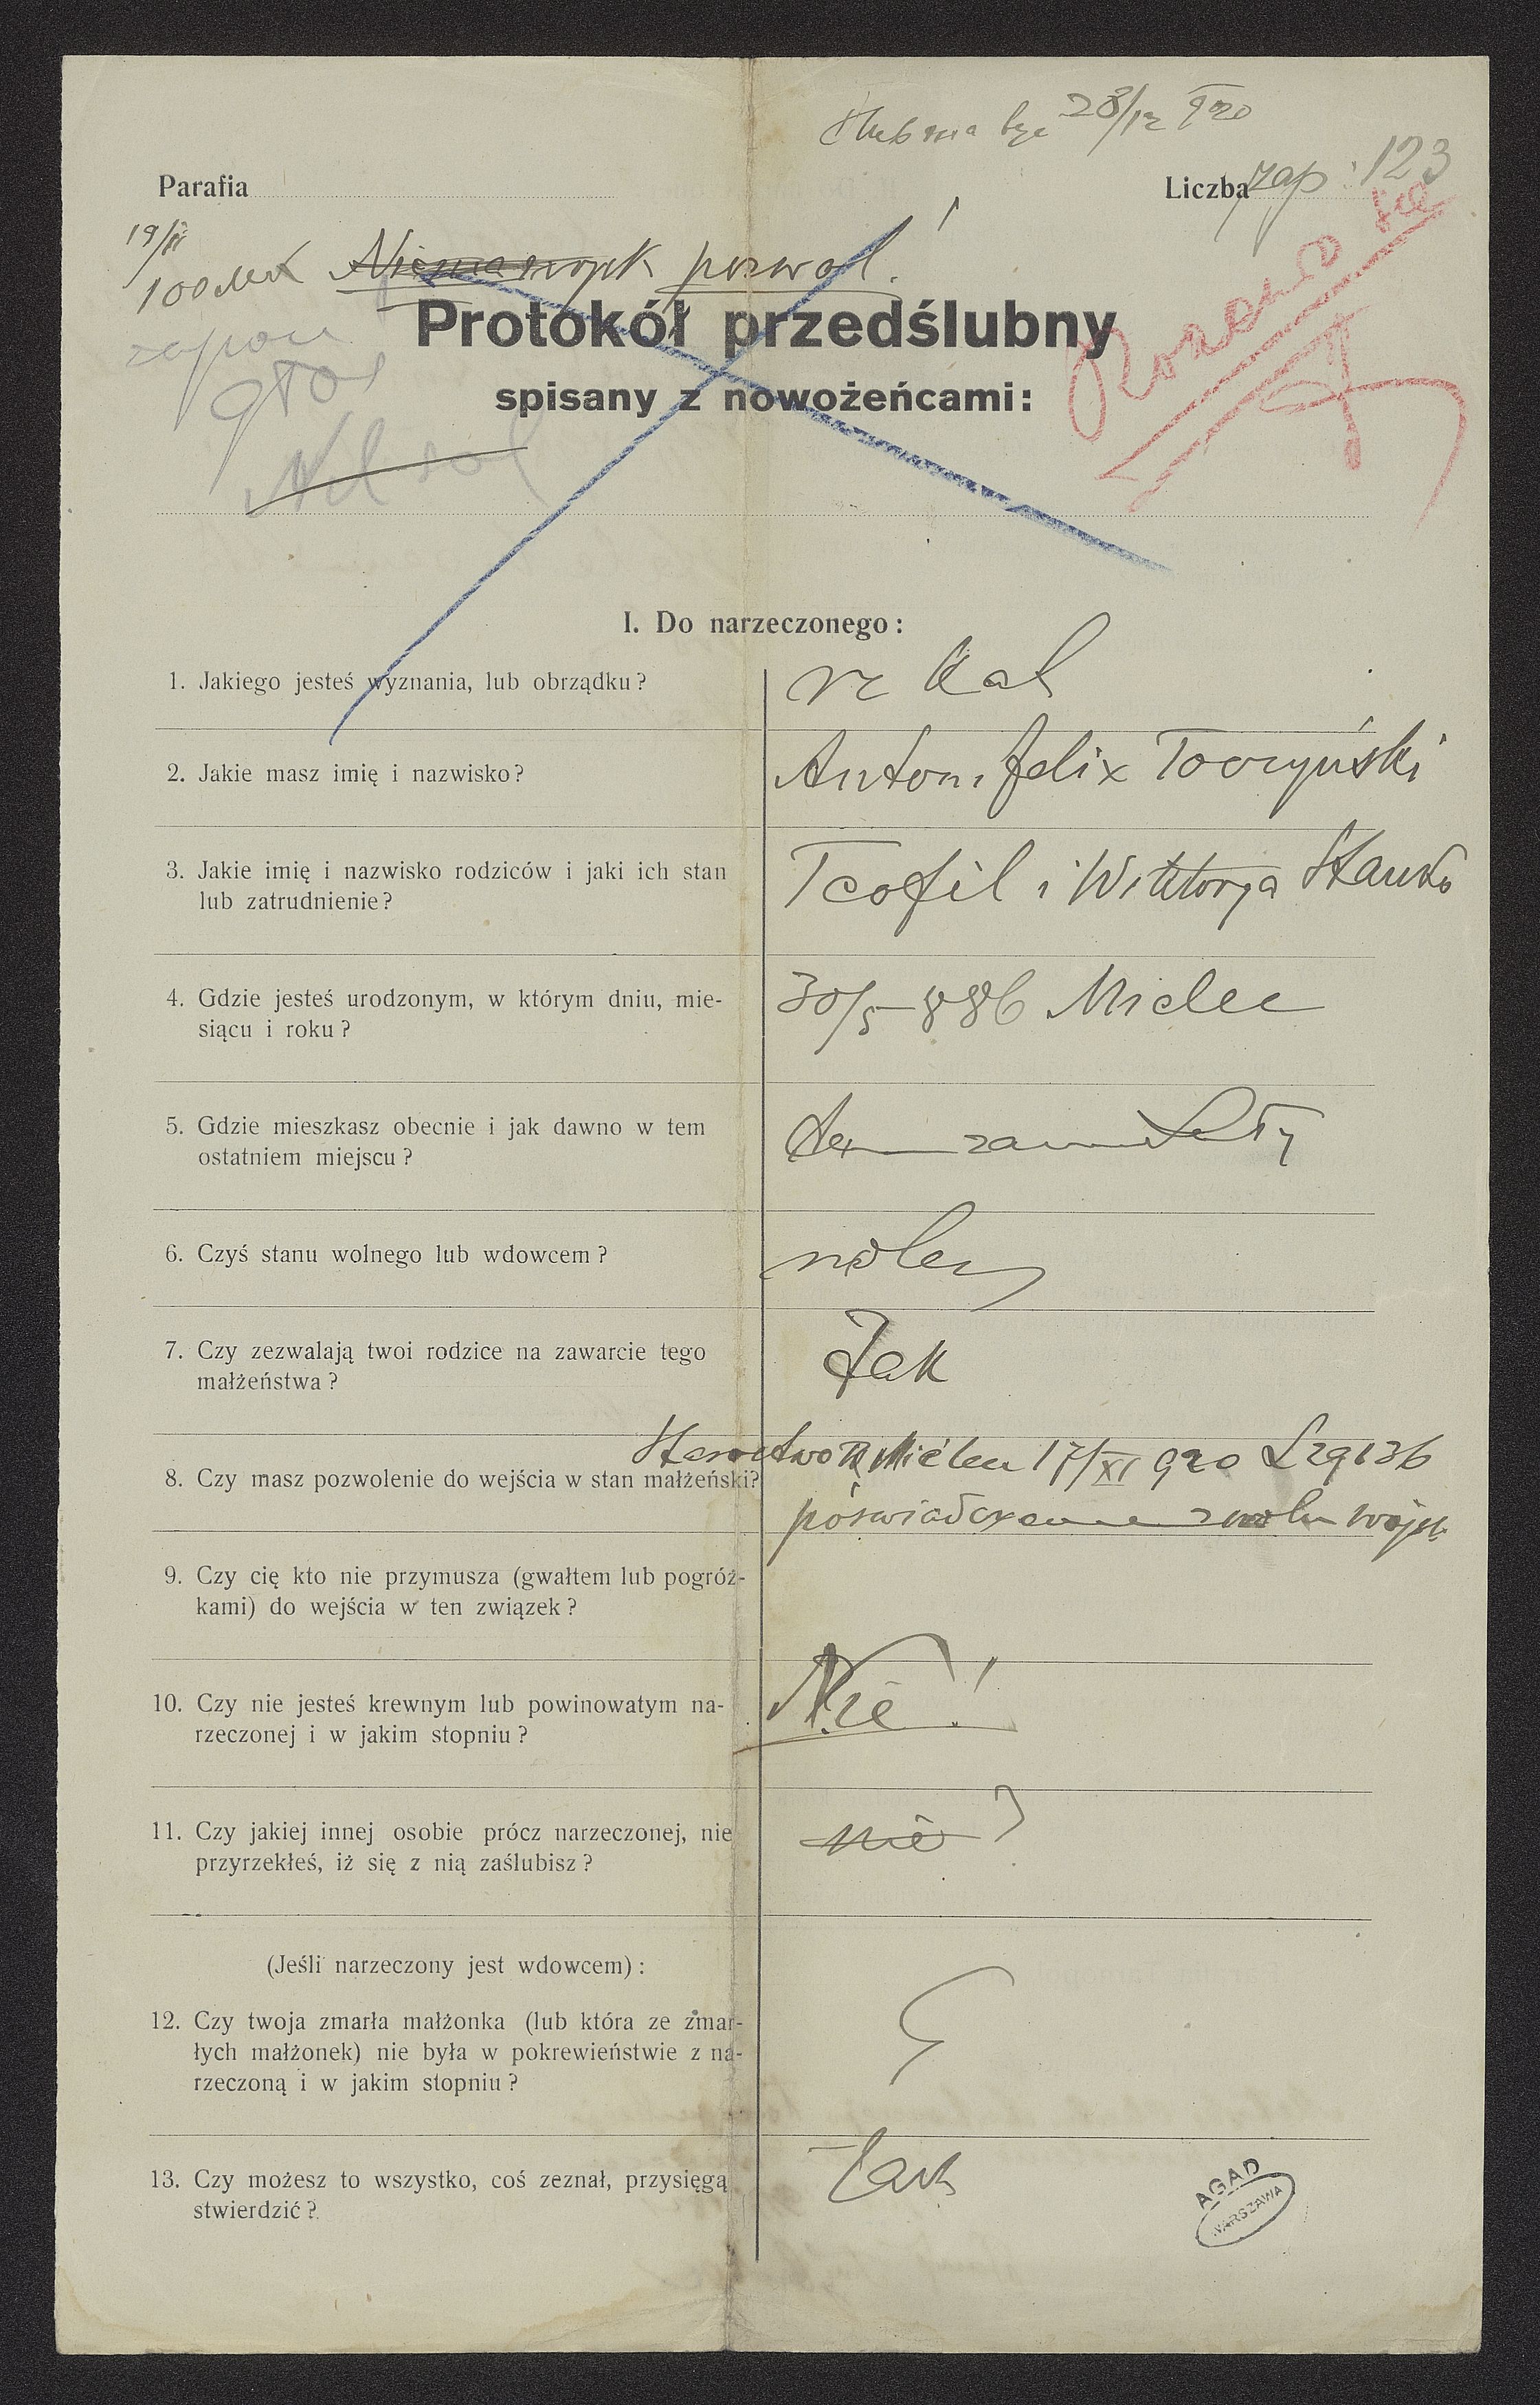 Ślub ma być 28/12 920
Parafia
Liczba zap: 123
19/11
100 Mk Niema wojsk pozwol!
Protokół przedślubny
spisany z nowożeńcami:
zapow
głos
I. Do narzeczonego:
1. Jakiego jesteś wyznania, lub obrządku?
rz kat
2. Jakie masz imię i nazwisko?
Antoni Felix Toczyński
3. Jakie imię i nazwisko rodziców i jaki ich stan
lub zatrudnienie?
Teofil i Wiktorya
4. Gdzie jesteś urodzonym, w którym dniu, mie-
siącu i roku?
30/5 886 Mielec
5. Gdzie mieszkasz obecnie i jak dawno w tem
ostatniem miejscu?
6. Czyś stanu wolnego lub wdowcem?
wolny
7. Czy zezwalają twoi rodzice na zawarcie tego
małżeństwa?
Tak
Starostwo Mielec 17/XI 920 L 29136
8. Czy masz pozwolenie do wejścia w stan małżeński?
poświadczenie wojsk.
9. Czy cię kto nie przymusza (gwałtem lub pogróż-
kami) do wejścia w ten związek?
10. Czy nie jesteś krewnym lub powinowatym na-
rzeczonej i w jakim stopniu?
Nie!
11. Czy jakiej innej osobie prócz narzeczonej, nie
przyrzekłeś, iż się z nią zaślubisz?
nie
(Jeśli narzeczony jest wdowcem):
12. Czy twoja zmarła małżonka (lub która ze zmar-
łych małżonek) nie była w pokrewieństwie z na-
rzeczoną i w jakim stopniu?
13. Czy możesz to wszystko, coś zeznał, przysięgą
stwierdzić?
Tak
AGAD
WARSZAWA